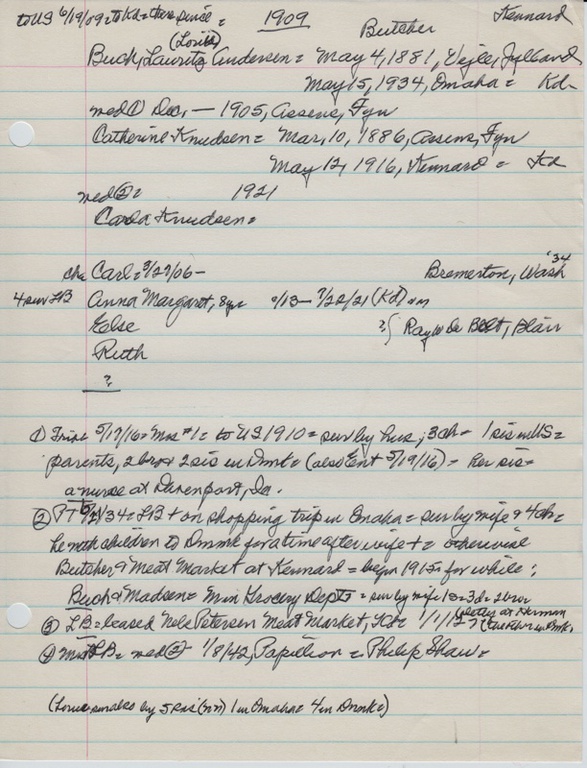 to US 6/19/09 = to Kd = there since = 1909 Butcher Kennard
(Louis)
Buch, Lauritz Andersen = May 4, 1881, Vejle, Jylland
May 15, 1934, Omaha = Kd
med ① Dec, — 1905, Assens, Fyn
Catherine Knudsen = Mar, 10, 1886, Assens, Fyn
May 12, 1916, Kennard = Kd
med ② = 1921
Carla Knudsen =
ch= Carl = 3/27/06 – Bremerton, Wash '34
4 surv LB Anna Margaret, 8 yrs /13 – 7/22/21 (Kd)
Else ?{ Ray De Bolt, Blair
Ruth
?
① Trib= 5/17/16 = Mrs #1 = to US 1910 = surv by hus, ; 3 ch = 1 sis in US =
parents, 2 bro & 2 sis in Dmk = (also Ent 5/19/16) = her sis =
a nurse at Davenport, Ia.
② PT /34 = LB + on shopping trip in Omaha = surv by wife & 4 ch =
he with children to Dmk for a time after wife + = otherwise
Butcher & Meat Market at Kennard = began 1915 for while ;
Buch & Madsen = Grocery Dept = surv by wife 2 bro
③ LB = leased Nels Petersen Meat Market, Kd = 1/1/12 = ? (sister at Herman (brother in Dmk,
④ Mrs LB = med ② – 1/8/42, Papillion = Philip Shaw =
(Louis survived by 5 (nn) 1 in Omaha = 4 in Dmk =)